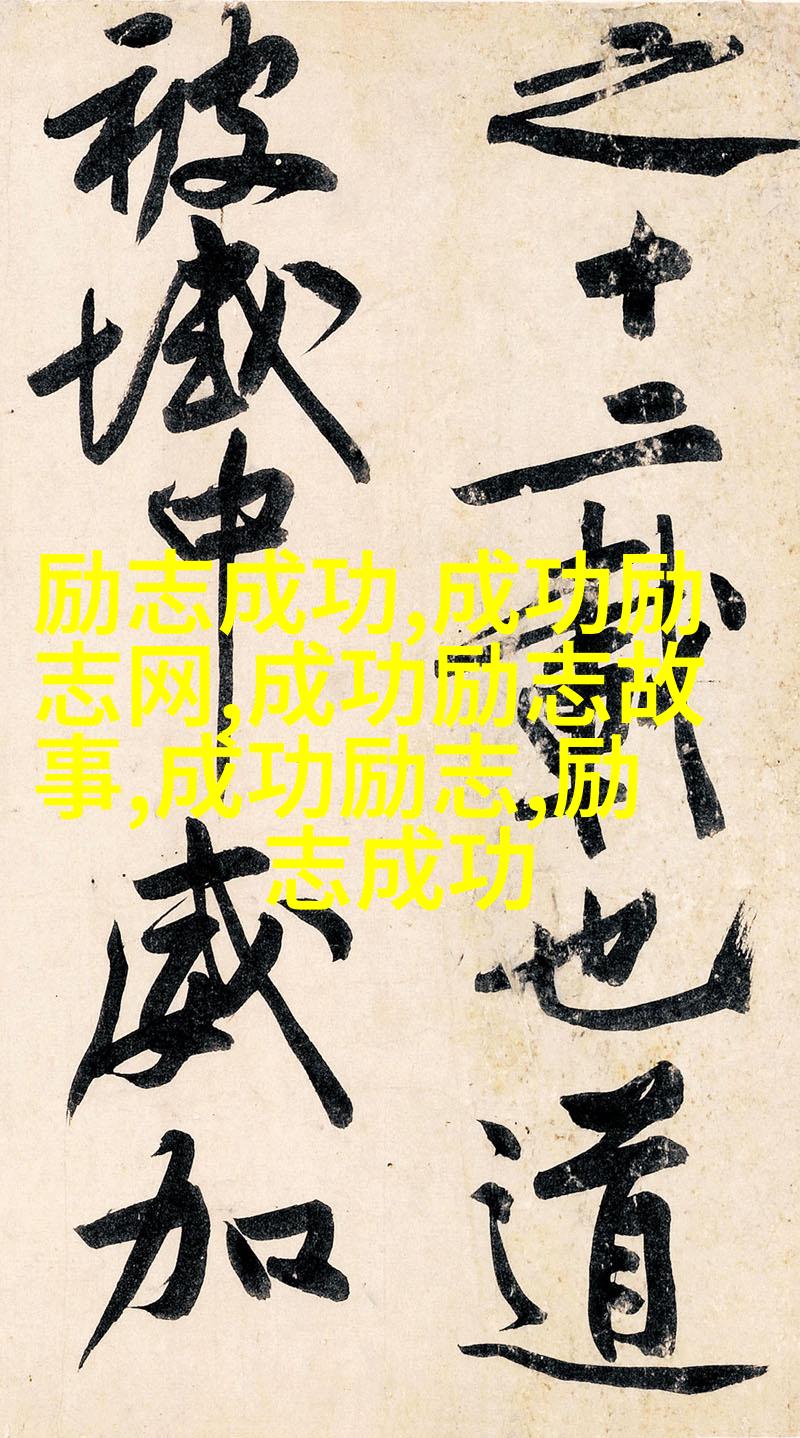 之十二載也道
被域中威加
励志成功,成功励
志网,成功励志故
事,成功励志,励
志成功